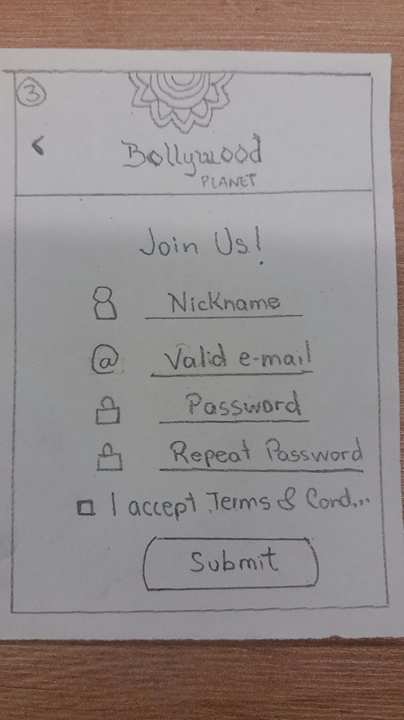 3
<
Bollywood
PLANET
Join Us!
Nickname
@ Valid e-mail
Password
Repeat Password
I accept Terms & Cond...
Submit